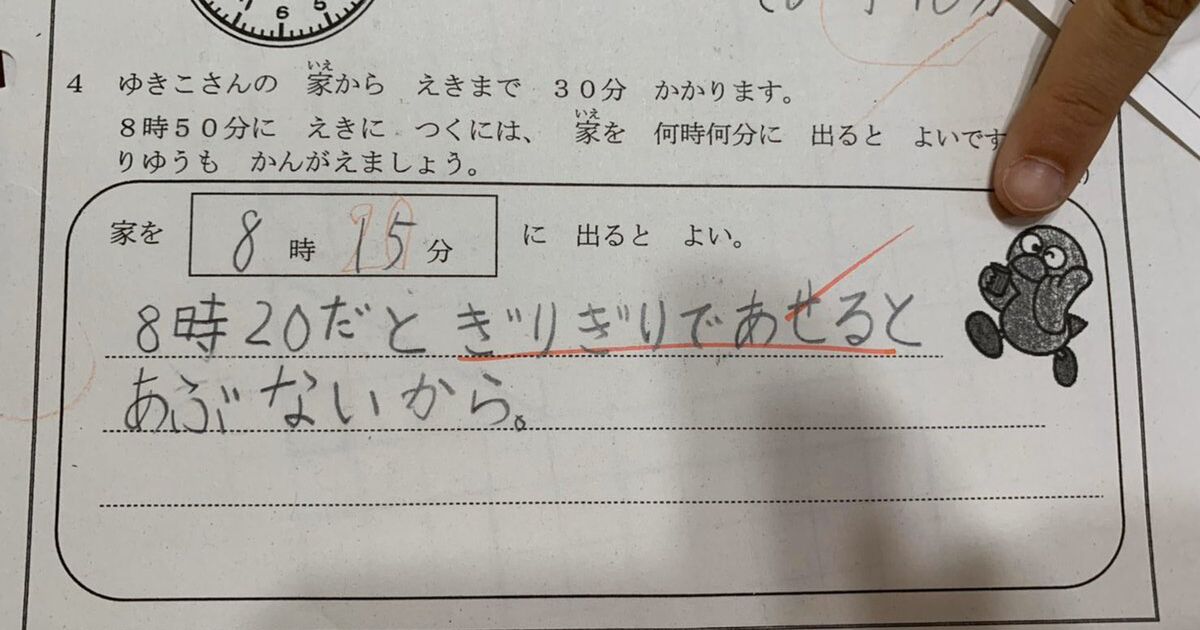 6
4 ゆきこさんの 家から えきまで 30分 かかります。
いえ
8時50分に えきに つくには、 家を 何時何分に 出ると よいです
いえ
りゆうも かんがえましょう。
家を 8 時 15 分 に 出ると よい。
20
8時20だと ぎりぎりであせると
あぶないから。